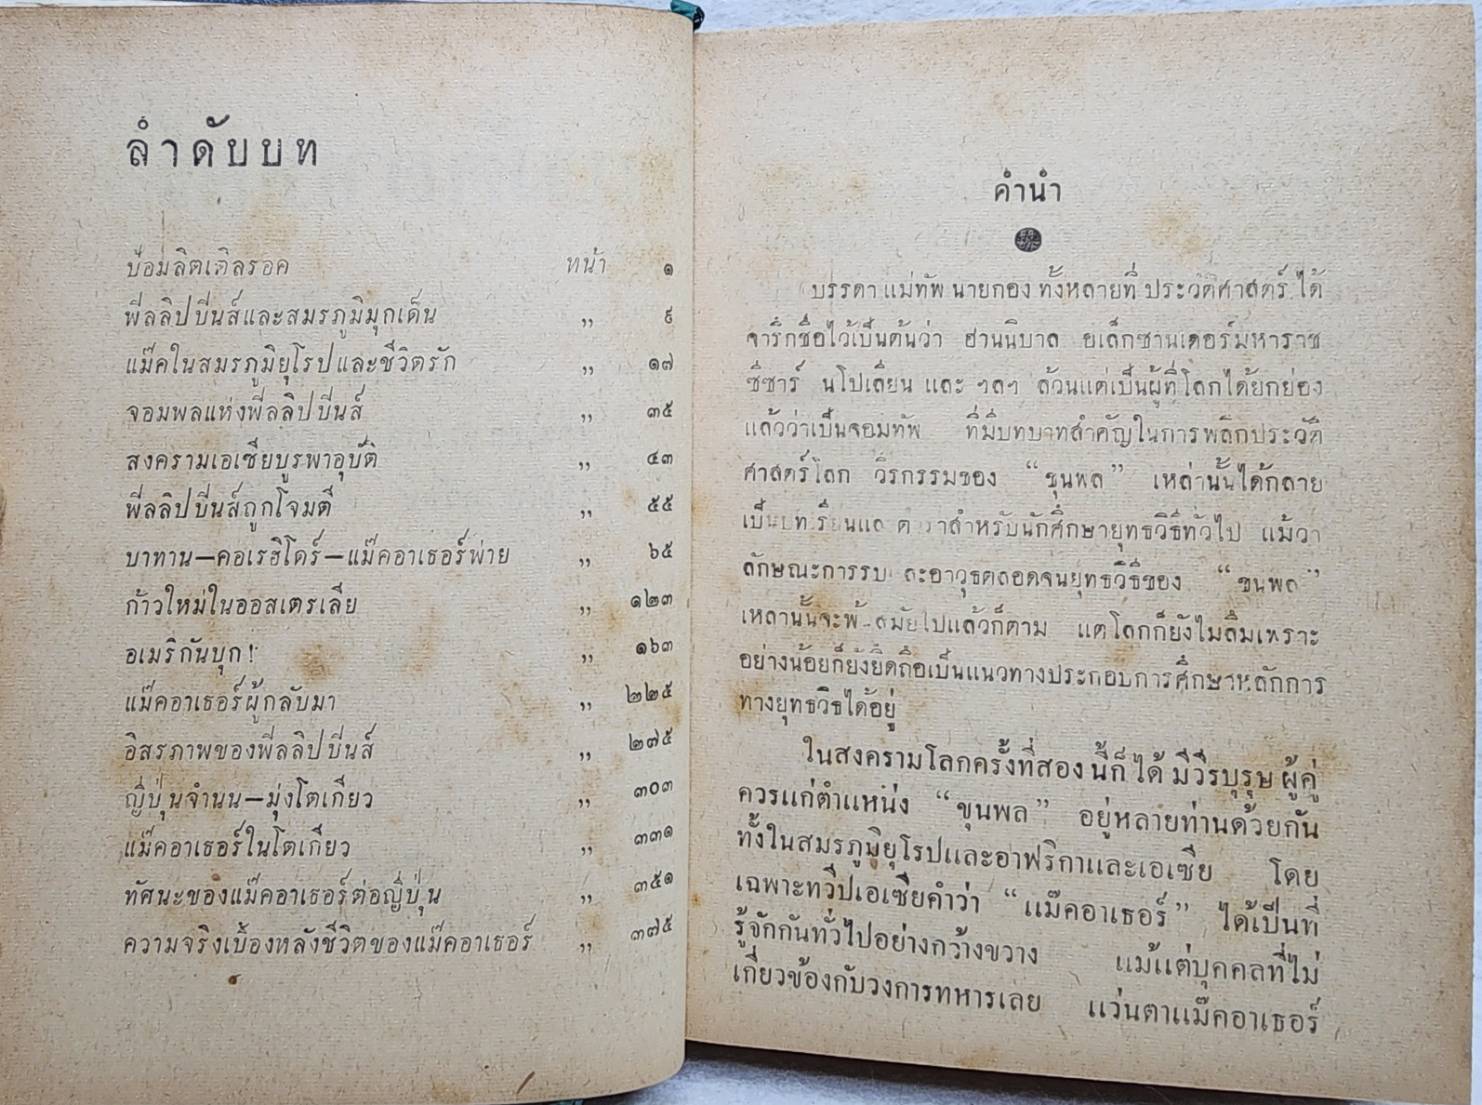 ลำดับบท
ป้อมลิตเติลรอค หน้า ๑
ฟีลลิปปีนส์และสมรภูมิมุกเด็น ,, ๙
แม๊คในสมรภูมิยุโรปและชีวิตรัก ,, ๑๗
จอมพลแห่งฟีลลิปปีนส์ ,, ๓๕
สงครามเอเซียบูรพาอุบัติ ,, ๔๓
ฟีลลิปปีนส์ถูกโจมตี ,, ๕๕
บาทาน—คอเรฮิโดร์—แม๊คอาเธอร์พ่าย ,, ๖๕
ก้าวใหม่ในออสเตรเลีย ,, ๑๒๓
อเมริกันบุก! ,, ๑๖๓
แม๊คอาเธอร์ผู้กลับมา ,, ๒๒๕
อิสรภาพของฟีลลิปปีนส์ ,, ๒๗๕
ญี่ปุ่นจำนน—มุ่งโตเกียว ,, ๓๐๓
แม๊คอาเธอร์ในโตเกียว ,, ๓๓๑
ทัศนะของแม๊คอาเธอร์ต่อญี่ปุ่น ,, ๓๕๑
ความจริงเบื้องหลังชีวิตของแม๊คอาเธอร์ ,, ๓๗๕
คำนำ
บรรดาแม่ทัพ นายกอง ทั้งหลายที่ ประวัติศาสตร์ ได้
จารึกชื่อไว้เป็นต้นว่า ฮานนิบาล อเล็กซานเดอร์มหาราช
ซีซาร์ นโปเลียน และ ฯลฯ ล้วนแต่เป็นผู้ที่โลกได้ยกย่อง
แล้วว่าเป็นจอมทัพ ที่มีบทบาทสำคัญในการพลิกประวัติ
ศาสตร์โลก วีรกรรมของ “ขุนพล” เหล่านั้นได้กลาย
เป็นบทเรียนและ สำหรับนักศึกษายุทธวิธีทั่วไป แม้ว่า
ลักษณะการรบ และอาวุธตลอดจนยุทธวิธีของ “ขุนพล”
เหล่านั้นจะพ้นสมัยไปแล้วก็ตาม แต่โลกก็ยังไม่ลืมเพราะ
อย่างน้อยก็ยังยึดถือเป็นแนวทางประกอบการศึกษาหลักการ
ทางยุทธวิธีได้อยู่
ในสงครามโลกครั้งที่สอง นี้ก็ ได้ มีวีรบุรุษ ผู้คู่
ควรแก่ตำแหน่ง “ขุนพล” อยู่หลายท่านด้วยกัน
ทั้งในสมรภูมิยุโรปและอาฟริกาและเอเซีย โดย
เฉพาะทวีปเอเซียคำว่า “แม๊คอาเธอร์” ได้เป็นที่
รู้จักกันทั่วไปอย่างกว้างขวาง แม้แต่บุคคลที่ไม่
เกี่ยวข้องกับวงการทหารเลย แว่นตาแม๊คอาเธอร์